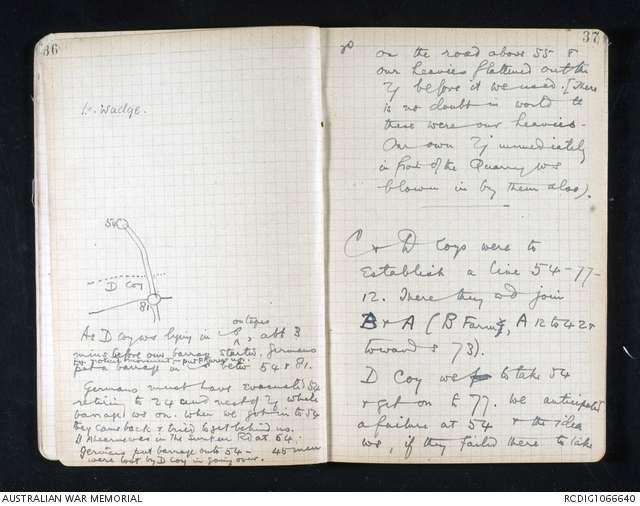 36
Lt. Wadge.
54
D Coy
81
on tapes
As D Coy was lying in, abt 3
mins before our barrage started, Germans
put a barrage in betw 54 & 81.
Germans must have evacuated 54
retiring to 24 and rest of Tj while
barrage ws on. When we got in to 54
they came back & tried to get behind us.
in the Sunken Rd at 54.
Germans put barrage onto 54 - 45 men
were lost by D Coy in going over.
37
on the road above 55 &
our heavies flattened out the
Tj before it ws used. [There
is no doubt in world tt
these were our heavies.
Our own Tj immediately
in front of the Quarry ws
blown in by them also).
C & D Coys were to
establish a line 54-77-
12. There they wd join
B & A (B Farm, A 12 to 42 &
towards 73).
D Coy ws to take 54
& get on to 77. We anticipated
a failure at 54 & the idea
ws, if they failed there to take
AUSTRALIAN WAR MEMORIAL
RCDIG1066640